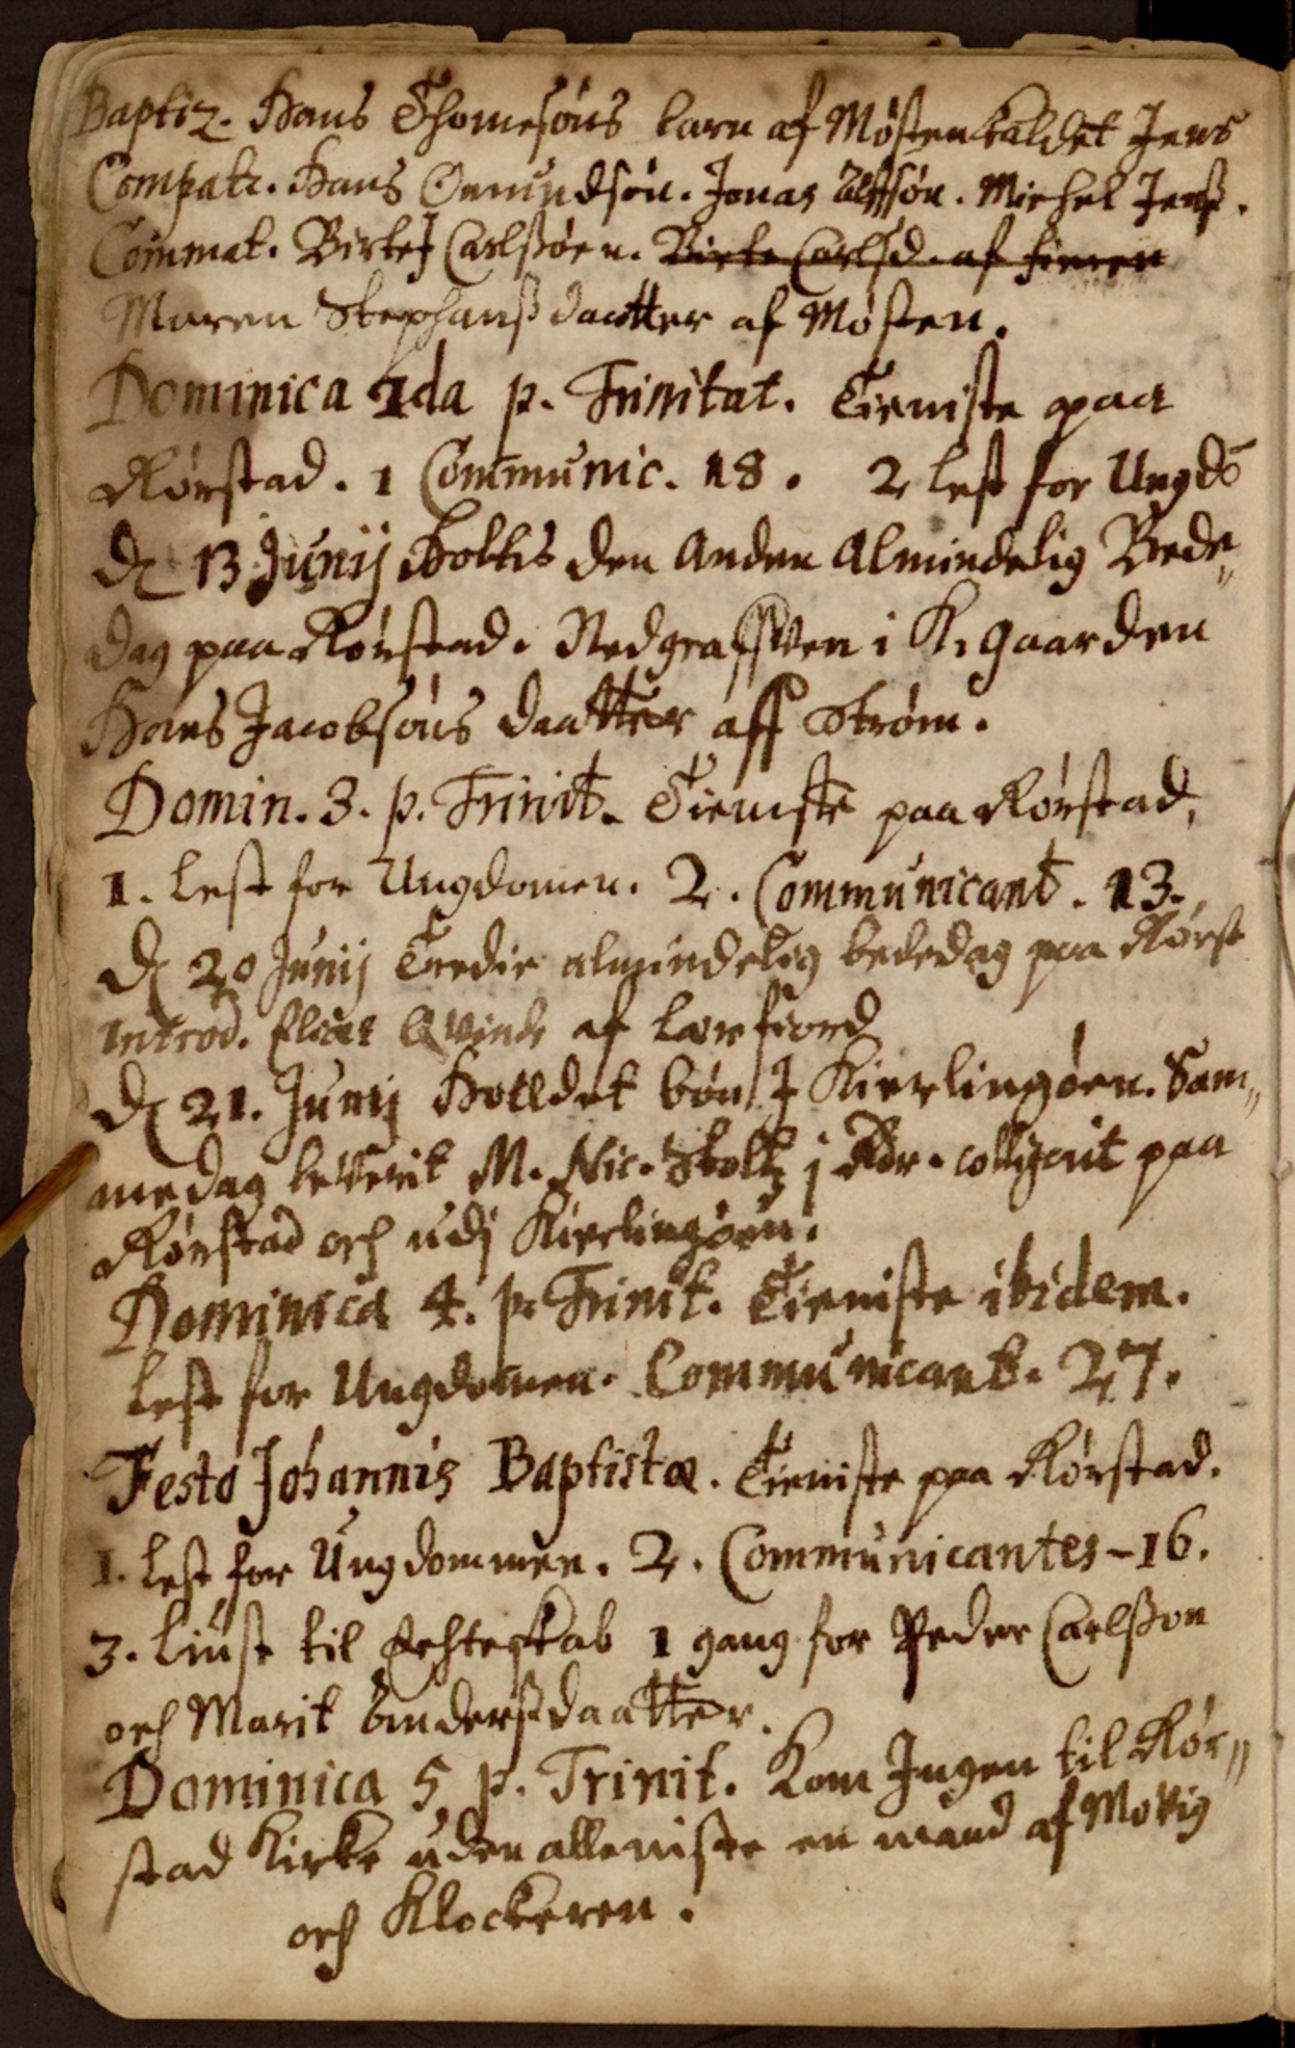 Baptiz. Hans Thomesøns barn af Møsten kaldet Jens
Compatr. Hans Omundsøn. Jonas Ulfsøn. Michel Jenß.
Commat. Birte J Carlsøen. Birte Carlsd. af Fieren
Maren Stephanß daatter af Møsten.
Dominica 2da p. Trinitat. Tieniste paa
Rørstad. 1 Communic. 18. 2 lest for Ungdō
D 13 Junij Holtes den Anden Almindelig Bede„
dag paa Rørstad. Nedgrafften i K.gaarden
Hans Jacobsøns daatter aff Strøm.
Domin. 3. p. Trinit. Tieniste paa Rørstad,
1. lest for Ungdomen. 2. Communicant. 13.
D 20 Junij Tredie almindelig bededag paa Rørst
Introd. Elias Qvinde af Lørfiord
D 21. Junij Holldet bøn J Kierlingøen. Sam„
me dag leverit M. Nic. Stoltz j Rdr. colligerit paa
Rørstad och udj Kierlingøen.
Dominica 4. p. Trinit. Tieniste ibidem.
lest for Ungdomen. Communicant. 27.
Festo Johannis Baptistæ. Tieniste paa Rørstad.
1. lest for Ungdommen. 2. Communicantes - 16.
3. liust til Echteskab 1 gang for Peder Carlßon
och Marit Anderßdaatter.
Dominica 5 p. Trinit. Kom Ingen til Rør„
stad Kirke uden alleniste en mand af Movig
och Klockeren.